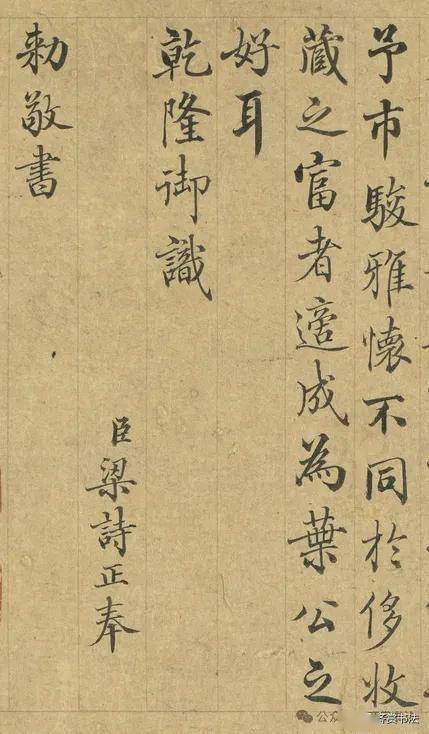 予市駿雅懐不同於侈收
藏之富者適成為葉公之
好耳
乾隆御識
臣梁詩正奉
勅敬書